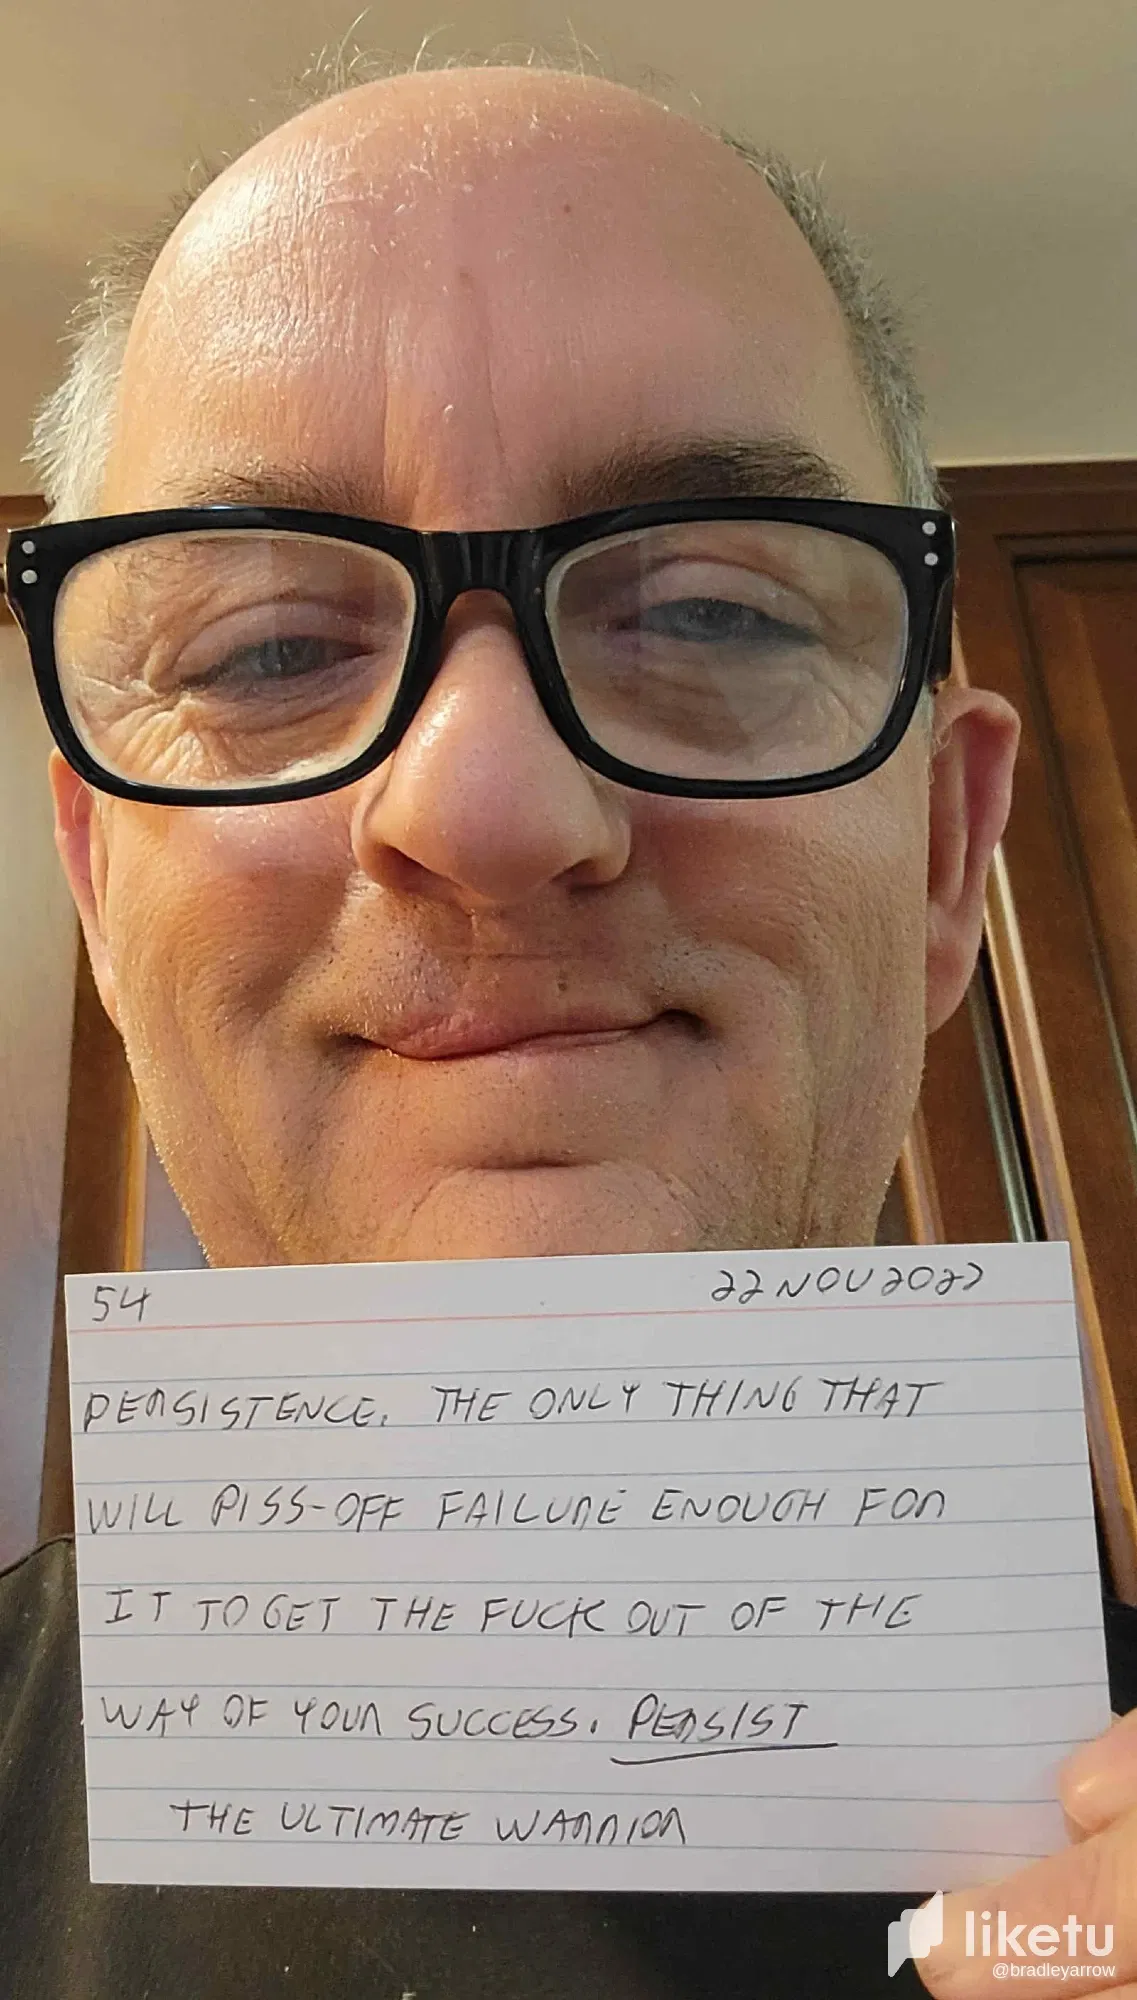 54 22 NOV 2022
PERSISTENCE. THE ONLY THING THAT
WILL PISS-OFF FAILURE ENOUGH FOR
IT TO GET THE FUCK OUT OF THE
WAY OF YOUR SUCCESS. PERSIST
THE ULTIMATE WARRIOR
liketu
@bradleyarrow